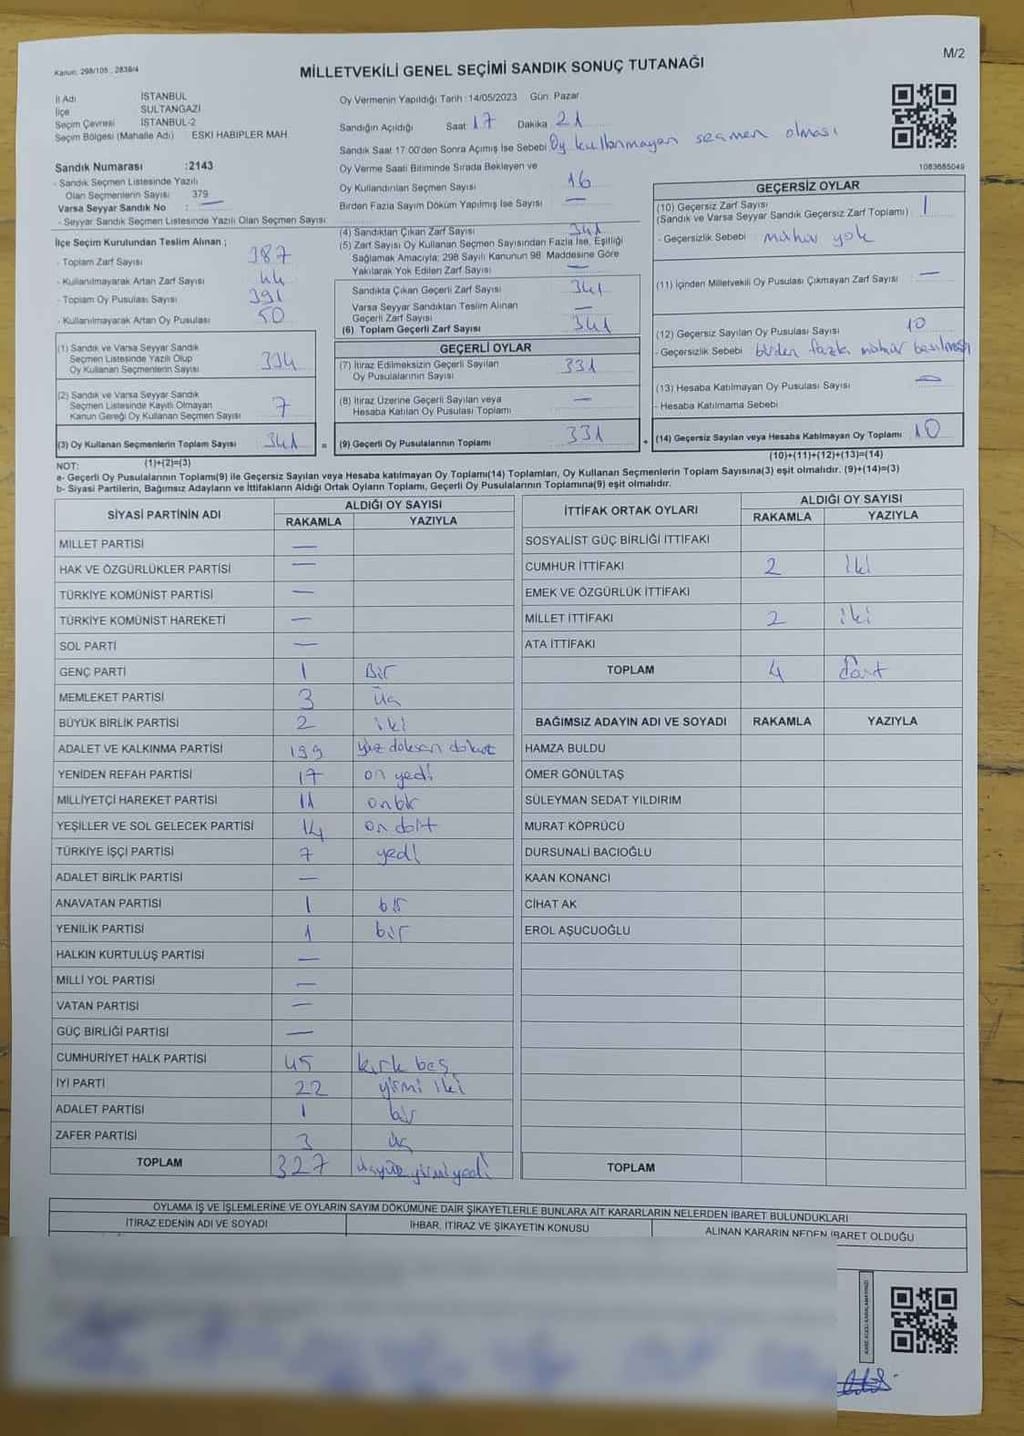 M/2
Kanun: 298/105 , 2839/4
MİLLETVEKİLİ GENEL SEÇİMİ SANDIK SONUÇ TUTANAĞI
İl Adı İSTANBUL
İlçe SULTANGAZİ
Seçim Çevresi İSTANBUL-2
Seçim Bölgesi (Mahalle Adı) ESKİ HABİPLER MAH.
Oy Vermenin Yapıldığı Tarih :14/05/2023 Gün: Pazar
Sandığın Açıldığı Saat 17 Dakika 21
Sandık Saat 17:00'den Sonra Açılmış İse Sebebi Oy kullanmayan seçmen olması
1083685049
Sandık Numarası :2143
- Sandık Seçmen Listesinde Yazılı
Olan Seçmenlerin Sayısı: 379
Varsa Seyyar Sandık No : —
- Seyyar Sandık Seçmen Listesinde Yazılı Olan Seçmen Sayısı
Oy Verme Saati Bitiminde Sırada Bekleyen ve
Oy Kullandırılan Seçmen Sayısı 16
Birden Fazla Sayım Döküm Yapılmış İse Sayısı —
İlçe Seçim Kurulundan Teslim Alınan ;
- Toplam Zarf Sayısı 387
- Kullanılmayarak Artan Zarf Sayısı 44
- Toplam Oy Pusulası Sayısı 391
- Kullanılmayarak Artan Oy Pusulası 50
(1) Sandık ve Varsa Seyyar Sandık
Seçmen Listesinde Yazılı Olup
Oy Kullanan Seçmenlerin Sayısı 334
(2) Sandık ve Varsa Seyyar Sandık
Seçmen Listesinde Kayıtlı Olmayan
Kanun Gereği Oy Kullanan Seçmen Sayısı 7
(3) Oy Kullanan Seçmenlerin Toplam Sayısı 341
(1)+(2)=(3)
(4) Sandıktan Çıkan Zarf Sayısı 341
(5) Zarf Sayısı Oy Kullanan Seçmen Sayısından Fazla İse, Eşitliği
Sağlamak Amacıyla; 298 Sayılı Kanunun 98. Maddesine Göre
Yakılarak Yok Edilen Zarf Sayısı —
Sandıkta Çıkan Geçerli Zarf Sayısı 341
Varsa Seyyar Sandıktan Teslim Alınan
Geçerli Zarf Sayısı —
(6) Toplam Geçerli Zarf Sayısı 341
GEÇERLİ OYLAR
(7) İtiraz Edilmeksizin Geçerli Sayılan
Oy Pusulalarının Sayısı 331
(8) İtiraz Üzerine Geçerli Sayılan veya
Hesaba Katılan Oy Pusulası Toplamı —
= (9) Geçerli Oy Pusulalarının Toplamı 331
GEÇERSİZ OYLAR
(10) Geçersiz Zarf Sayısı 1
(Sandık ve Varsa Seyyar Sandık Geçersiz Zarf Toplamı)
- Geçersizlik Sebebi mühür yok
(11) İçinden Milletvekili Oy Pusulası Çıkmayan Zarf Sayısı —
(12) Geçersiz Sayılan Oy Pusulası Sayısı 10
- Geçersizlik Sebebi birden fazla mühür basılması
(13) Hesaba Katılmayan Oy Pusulası Sayısı —
- Hesaba Katılmama Sebebi
+ (14) Geçersiz Sayılan veya Hesaba Katılmayan Oy Toplamı 10
(10)+(11)+(12)+(13)=(14)
NOT:
a- Geçerli Oy Pusulalarının Toplamı(9) ile Geçersiz Sayılan veya Hesaba katılmayan Oy Toplamı(14) Toplamları, Oy Kullanan Seçmenlerin Toplam Sayısına(3) eşit olmalıdır. (9)+(14)=(3)
b- Siyasi Partilerin, Bağımsız Adayların ve İttifakların Aldığı Ortak Oyların Toplamı, Geçerli Oy Pusulalarının Toplamına(9) eşit olmalıdır.
SİYASİ PARTİNİN ADI ALDIĞI OY SAYISI
RAKAMLA YAZIYLA
MİLLET PARTİSİ —
HAK VE ÖZGÜRLÜKLER PARTİSİ —
TÜRKİYE KOMÜNİST PARTİSİ —
TÜRKİYE KOMÜNİST HAREKETİ —
SOL PARTİ —
GENÇ PARTİ 1 Bir
MEMLEKET PARTİSİ 3 Üç
BÜYÜK BİRLİK PARTİSİ 2 iki
ADALET VE KALKINMA PARTİSİ 199 yüz doksan dokuz
YENİDEN REFAH PARTİSİ 17 on yedi
MİLLİYETÇİ HAREKET PARTİSİ 11 onbir
YEŞİLLER VE SOL GELECEK PARTİSİ 14 on dört
TÜRKİYE İŞÇİ PARTİSİ 7 yedi
ADALET BİRLİK PARTİSİ —
ANAVATAN PARTİSİ 1 bir
YENİLİK PARTİSİ 1 bir
HALKIN KURTULUŞ PARTİSİ —
MİLLİ YOL PARTİSİ —
VATAN PARTİSİ —
GÜÇ BİRLİĞİ PARTİSİ —
CUMHURİYET HALK PARTİSİ 45 kırk beş
İYİ PARTİ 22 yirmi iki
ADALET PARTİSİ 1 bir
ZAFER PARTİSİ 3 üç
TOPLAM 327 üçyüz yirmi yedi
İTTİFAK ORTAK OYLARI ALDIĞI OY SAYISI
RAKAMLA YAZIYLA
SOSYALİST GÜÇ BİRLİĞİ İTTİFAKI
CUMHUR İTTİFAKI 2 iki
EMEK VE ÖZGÜRLÜK İTTİFAKI
MİLLET İTTİFAKI 2 iki
ATA İTTİFAKI
TOPLAM 4 dört
BAĞIMSIZ ADAYIN ADI VE SOYADI RAKAMLA YAZIYLA
HAMZA BULDU
ÖMER GÖNÜLTAŞ
SÜLEYMAN SEDAT YILDIRIM
MURAT KÖPRÜCÜ
DURSUNALİ BACIOĞLU
KAAN KONANCI
CİHAT AK
EROL AŞUCUOĞLU
TOPLAM
OYLAMA İŞ VE İŞLEMLERİNE VE OYLARIN SAYIM DÖKÜMÜNE DAİR ŞİKAYETLERLE BUNLARA AİT KARARLARIN NELERDEN İBARET BULUNDUKLARI
İTİRAZ EDENİN ADI VE SOYADI İHBAR, İTİRAZ VE ŞİKAYETİN KONUSU ALINAN KARARIN NEDEN İBARET OLDUĞU